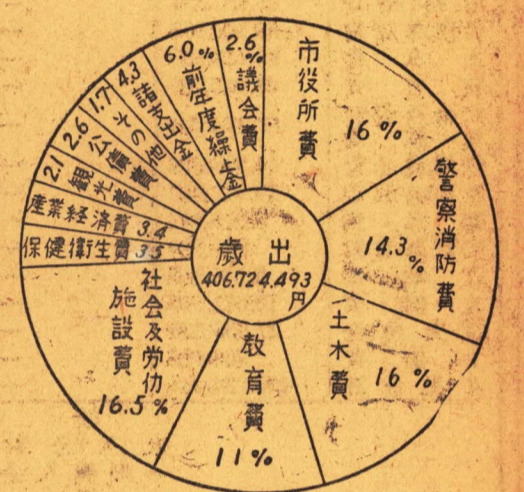 歳出
406.724.493
円
市役所費
16%
警察消防費
14.3%
土木費
16%
教育費
11%
社会及労仂
施設費
16.5%
保健衛生費 3.5
産業経済費 3.4
観光費
2.1
公債費
2.6
その他
1.7
諸支出金
4.3
前年度繰上金
6.0%
議会費
2.6%